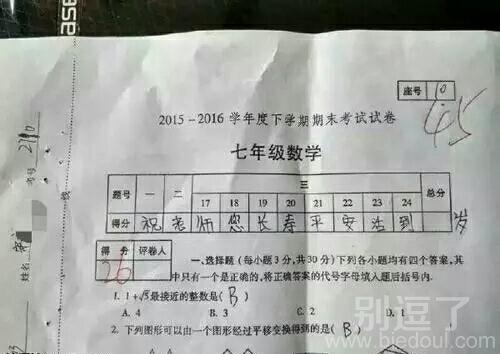 座号 10
2015-2016 学年度下学期期末考试试卷
45
七年级数学
题号 一 二 三 总分
17 18 19 20 21 22 23 24
得分 祝 老 师 您 长 寿 平 安 活 到 岁
得分 评卷人
26
一、选择题(每小题3分,共30分)下列各小题均有四个答案,其
中只有一个是正确的,将正确答案的代号字母填入题后括号内.
1. 1+√5最接近的整数是( B )
A. 4 B. 3 C. 2 D. 1
2. 下列图形可以由一个图形经过平移变换得到的是( B )
考号
姓名
线
别逗了
www.biedoul.com